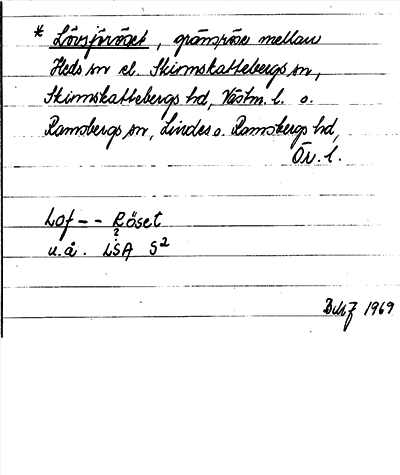 * Lövsjöröset, gränsröse mellan
Heds sn el. Skinnskattebergs sn,
Skinnskattebergs hd, Västm. l. o.
Ramsbergs sn, Lindes o. Ramsbergs hd,
Ör. l.
Lof-- Röset
?
u.å. LSA S2
1969